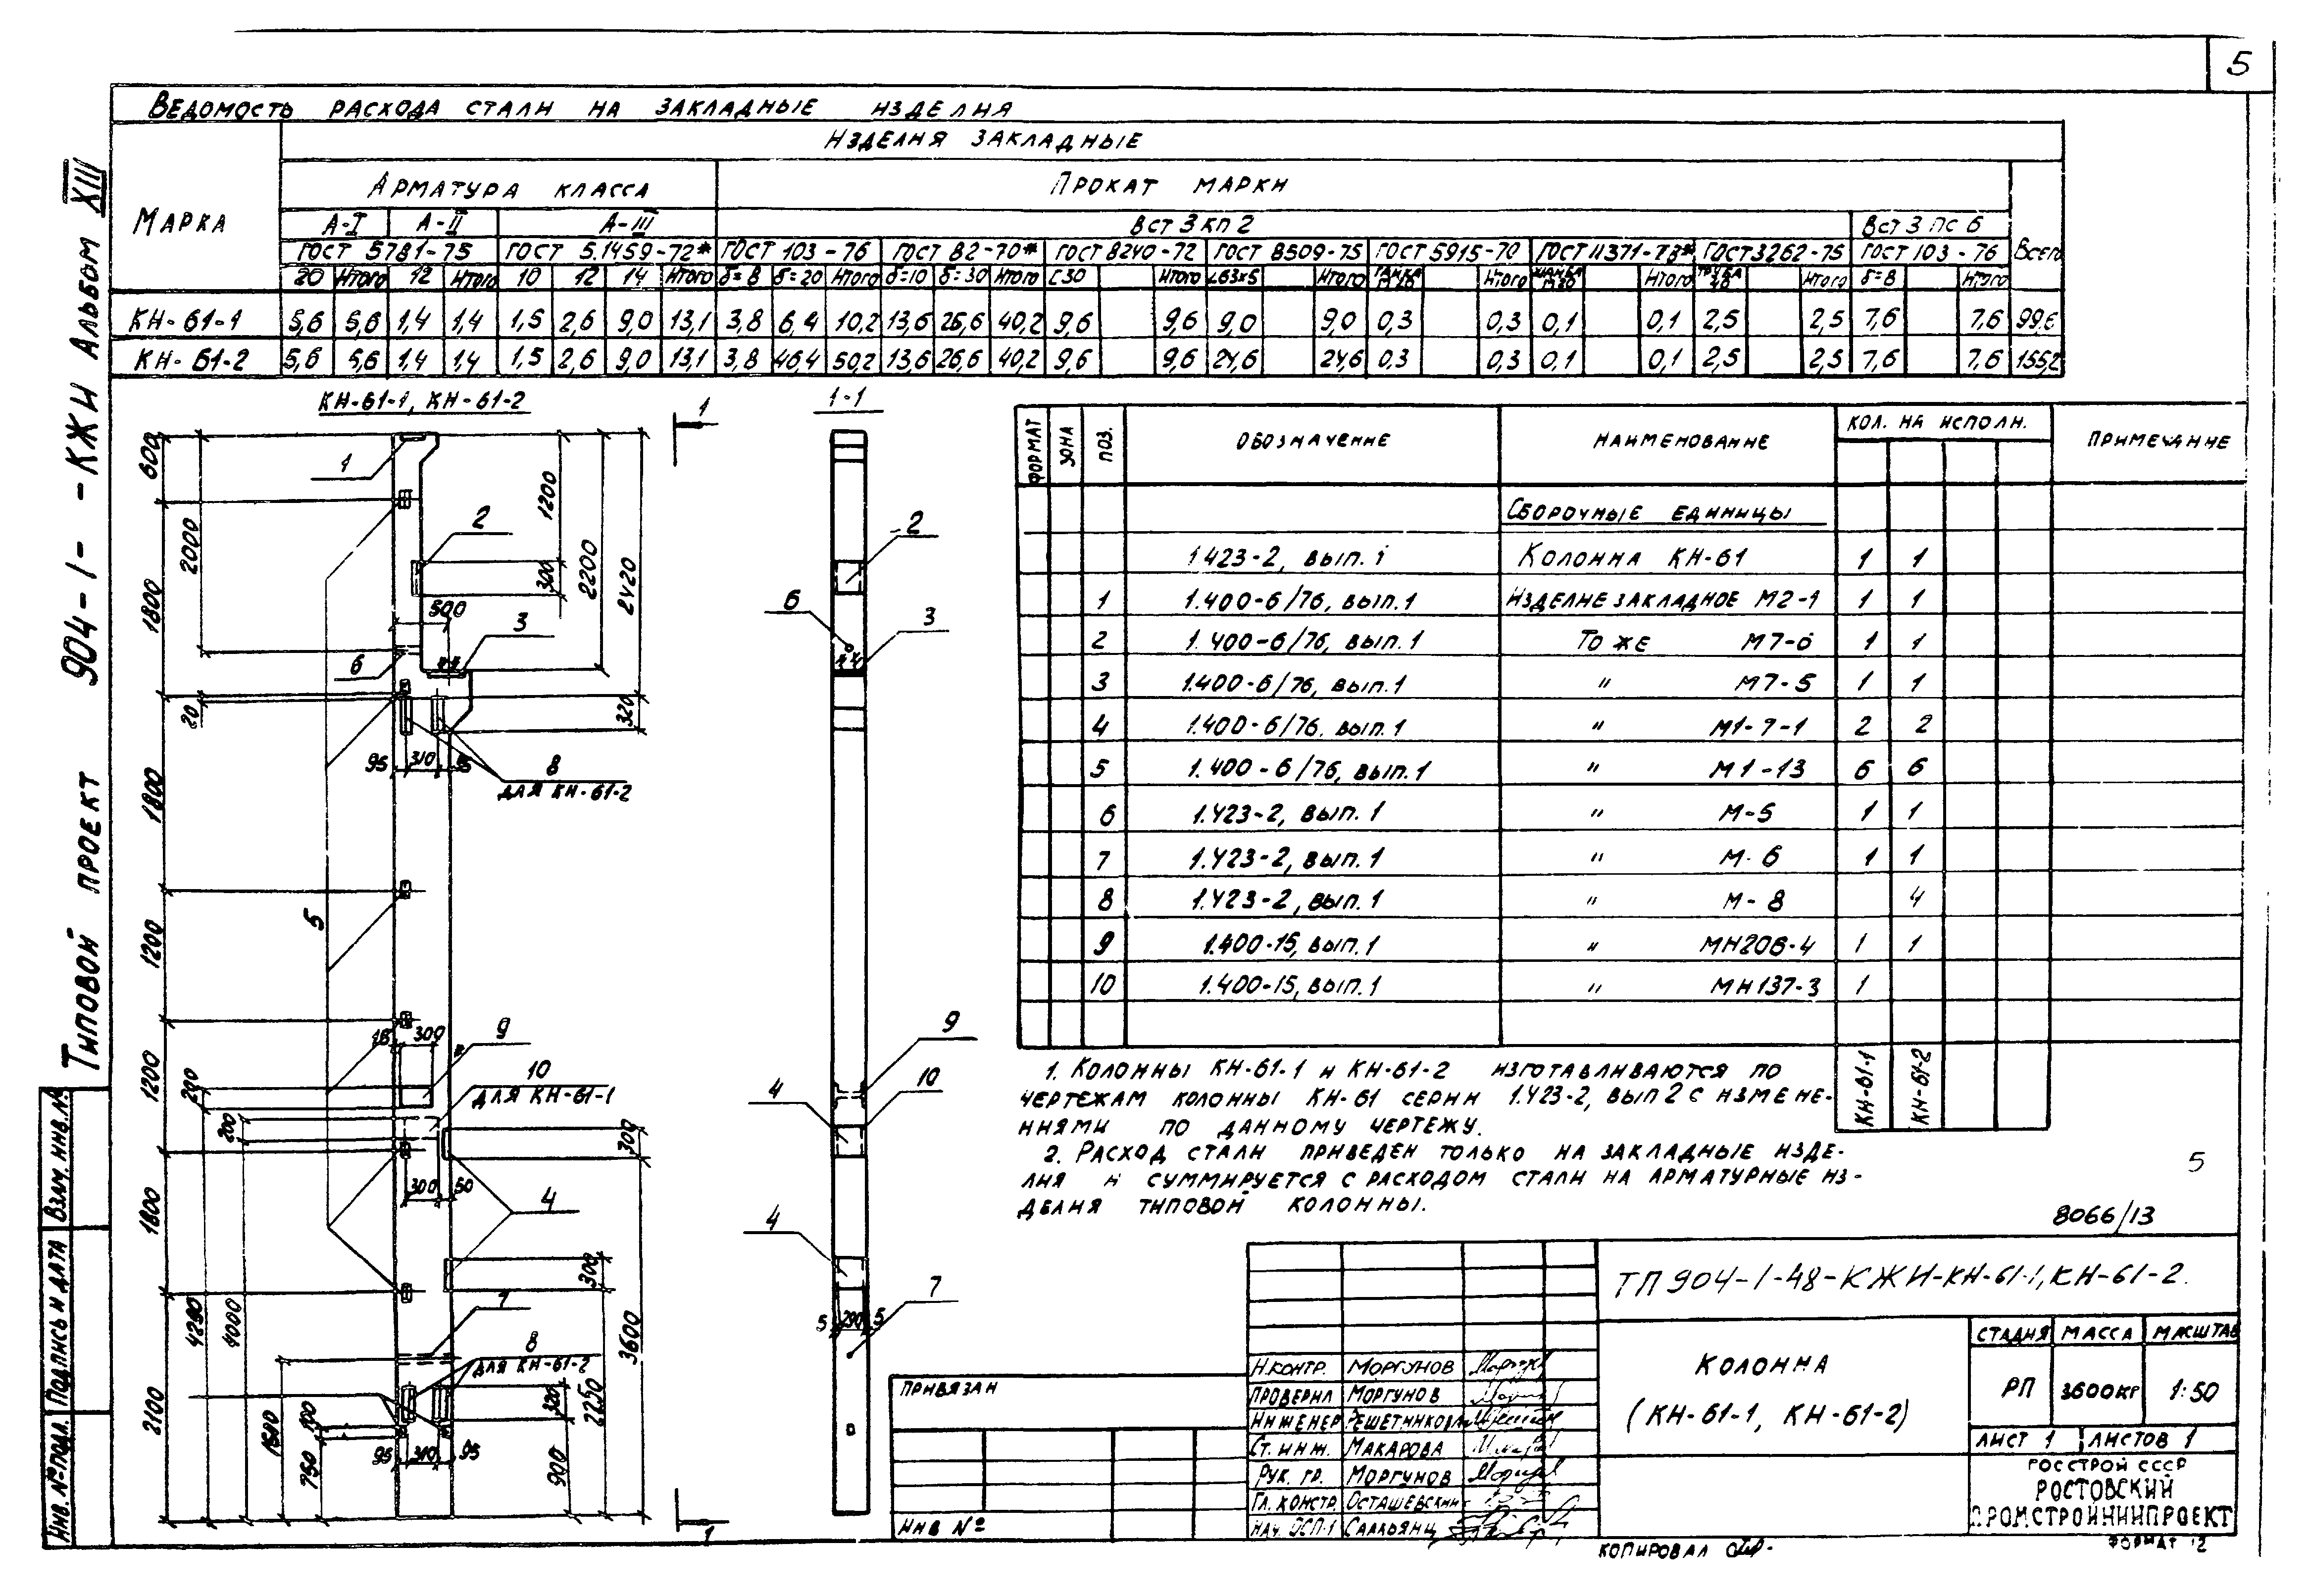 5
Ведомость расхода стали на закладные изделия
Марка
Изделия закладные
Арматура класса
Прокат марки
Всего
А-I А-II А-III ВСт 3 кп 2 ВСт 3 пс 6
ГОСТ 5781-75 ГОСТ 5.1459-72* ГОСТ 103-76 ГОСТ 82-70* ГОСТ 8240-72 ГОСТ 8509-75 ГОСТ 5915-70 ГОСТ 11371-78* ГОСТ 3262-75 ГОСТ 103-76
20 Итого 12 Итого 10 12 14 Итого δ=8 δ=20 Итого δ=10 δ=30 Итого С30 Итого L63x5 Итого Гайка М20 Итого Шайба М20 Итого Труба Итого δ=8 Итого
КН-61-1 5,6 5,6 1,4 1,4 1,5 2,6 9,0 13,1 3,8 6,4 10,2 13,6 26,6 40,2 9,6 9,6 9,0 9,0 0,3 0,3 0,1 0,1 2,5 2,5 7,6 7,6 99,6
КН-61-2 5,6 5,6 1,4 1,4 1,5 2,6 9,0 13,1 3,8 46,4 50,2 13,6 26,6 40,2 9,6 9,6 24,6 24,6 0,3 0,3 0,1 0,1 2,5 2,5 7,6 7,6 155,2
Типовой проект 904-1- -КЖИ Альбом XIII
КН-61-1, КН-61-2
1
1-1
600
1800
1800
1200
1200
1800
2100
2000
20
200
200
4280
4000
1
2
500
3
6
1200
300
2200
2420
320
95 310 95
8
для КН-61-2
5
300
9
10
для КН-61-1
300
300 50
4
300
3600
2250
7
8
для КН-61-2
320
900
100
750
95 310 95
1
2
6
3
9
10
4
4
5 290 5
7
Формат
Зона
Поз.
Обозначение
Наименование
Кол. на исполн.
Примечание
Сборочные единицы
1.423-2, вып. 1 Колонна КН-61 1 1
1 1.400-6/76, вып. 1 Изделие закладное М2-1 1 1
2 1.400-6/76, вып. 1 То же М7-6 1 1
3 1.400-6/76, вып. 1 " М7-5 1 1
4 1.400-6/76, вып. 1 " М1-7-1 2 2
5 1.400-6/76, вып. 1 " М1-13 6 6
6 1.423-2, вып. 1 " М-5 1 1
7 1.423-2, вып. 1 " М-6 1 1
8 1.423-2, вып. 1 " М-8 4
9 1.400-15, вып. 1 " МН206-4 1 1
10 1.400-15, вып. 1 " МН137-3 1
КН-61-1
КН-61-2
1. Колонны КН-61-1 и КН-61-2 изготавливаются по
чертежам колонны КН-61 серии 1.423-2, вып 2 с измене-
ниями по данному чертежу.
2. Расход стали приведен только на закладные изде-
лия и суммируется с расходом стали на арматурные из-
делия типовой колонны.
5
8066/13
ТП 904-1-48-КЖИ-КН-61-1, КН-61-2.
Колонна
(КН-61-1, КН-61-2)
Стадия Масса Масштаб
РП 3600кг 1:50
Лист 1 Листов 1
Госстрой СССР
Ростовский
Промстройниипроект
Н.контр. Моргунов
Проверил Моргунов
Инженер
Ст. инж. Макарова
Рук. гр. Моргунов
Гл. констр. Осташевский
Привязан
Инв №
Взам. инв. №
Подпись и дата
Инв. № подл.
Копировал
Формат 12